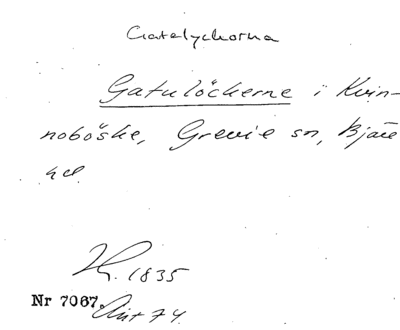 Gatelyckorna
Gatulöckerne i Kvin-
noböske, Grevie sn, Bjäre
hd.
1835
Nr 7067. Akt 74